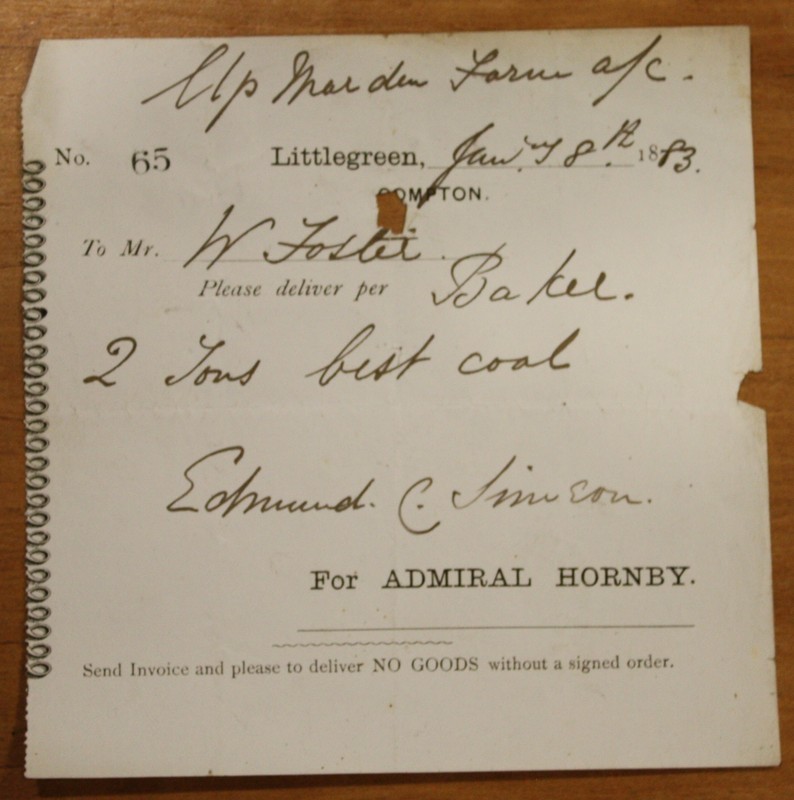 Up Marden Farm a/c.
No. 65 Littlegreen, Jan.y 8th. 1883.
COMPTON.
To Mr. W Foster.
Please deliver per Baker.
2 Tons best coal
Edmund. C. Simson.
For ADMIRAL HORNBY.
Send Invoice and please to deliver NO GOODS without a signed order.